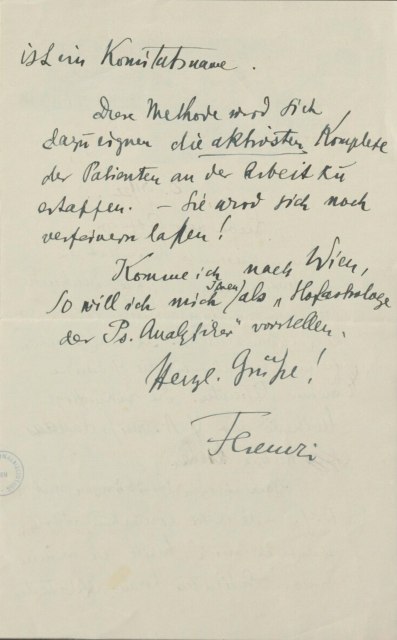 ist ein Komitatsname.
Diese Methode wird sich
dazu eignen die aktivsten Komplexe
der Patienten an der Arbeit zu
ertappen. — Sie wird sich noch
verfeinern laßen!
Komme ich nach Wien,
so will ich mich Ihnen als „Hofastrologe
der Ps. Analytiker" vorstellen.
Herzl. Grüße!
Ferenczi